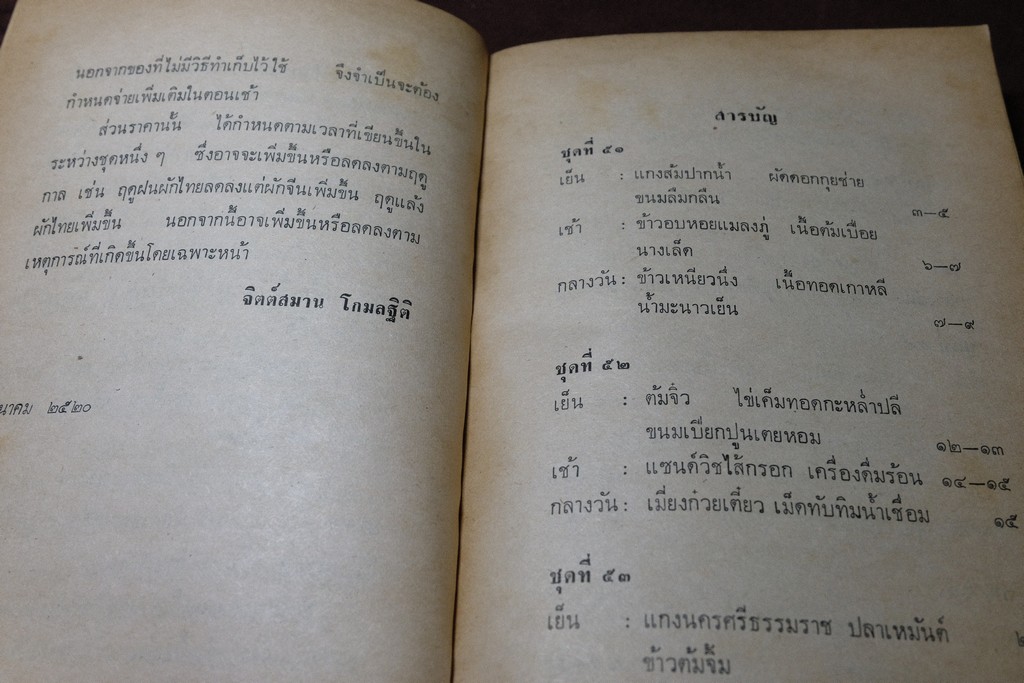 นอกจากของที่ไม่มีวิธีทำเก็บไว้ใช้ จึงจำเป็นจะต้อง
กำหนดจ่ายเพิ่มเติมในตอนเช้า
ส่วนราคานั้น ได้กำหนดตามเวลาที่เขียนขึ้นใน
ระหว่างชุดหนึ่ง ๆ ซึ่งอาจจะเพิ่มขึ้นหรือลดลงตามฤดู
กาล เช่น ฤดูฝนผักไทยลดลงแต่ผักจีนเพิ่มขึ้น ฤดูแล้ง
ผักไทยเพิ่มขึ้น นอกจากนี้อาจเพิ่มขึ้นหรือลดลงตาม
เหตุการณ์ที่เกิดขึ้นโดยเฉพาะหน้า
จิตต์สมาน โกมลฐิติ
นาคม ๒๕๒๐
สารบัญ
ชุดที่ ๕๑
เย็น : แกงส้มปากน้ำ ผัดดอกกุยช่าย
ขนมลืมกลืน ๓—๕
เช้า : ข้าวอบหอยแมลงภู่ เนื้อต้มเปื่อย
นางเล็ด ๖—๗
กลางวัน : ข้าวเหนียวนึ่ง เนื้อทอดเกาหลี
น้ำมะนาวเย็น ๗—๙
ชุดที่ ๕๒
เย็น : ต้มจิ๋ว ไข่เค็มทอดกะหล่ำปลี
ขนมเปียกปูนเตยหอม ๑๒—๑๓
เช้า : แซนด์วิชไส้กรอก เครื่องดื่มร้อน ๑๔—๑๕
กลางวัน : เมี่ยงก๋วยเตี๋ยว เม็ดทับทิมน้ำเชื่อม ๑๕
ชุดที่ ๕๓
เย็น : แกงนครศรีธรรมราช ปลาเหมันต์
ข้าวต้มจิ้ม